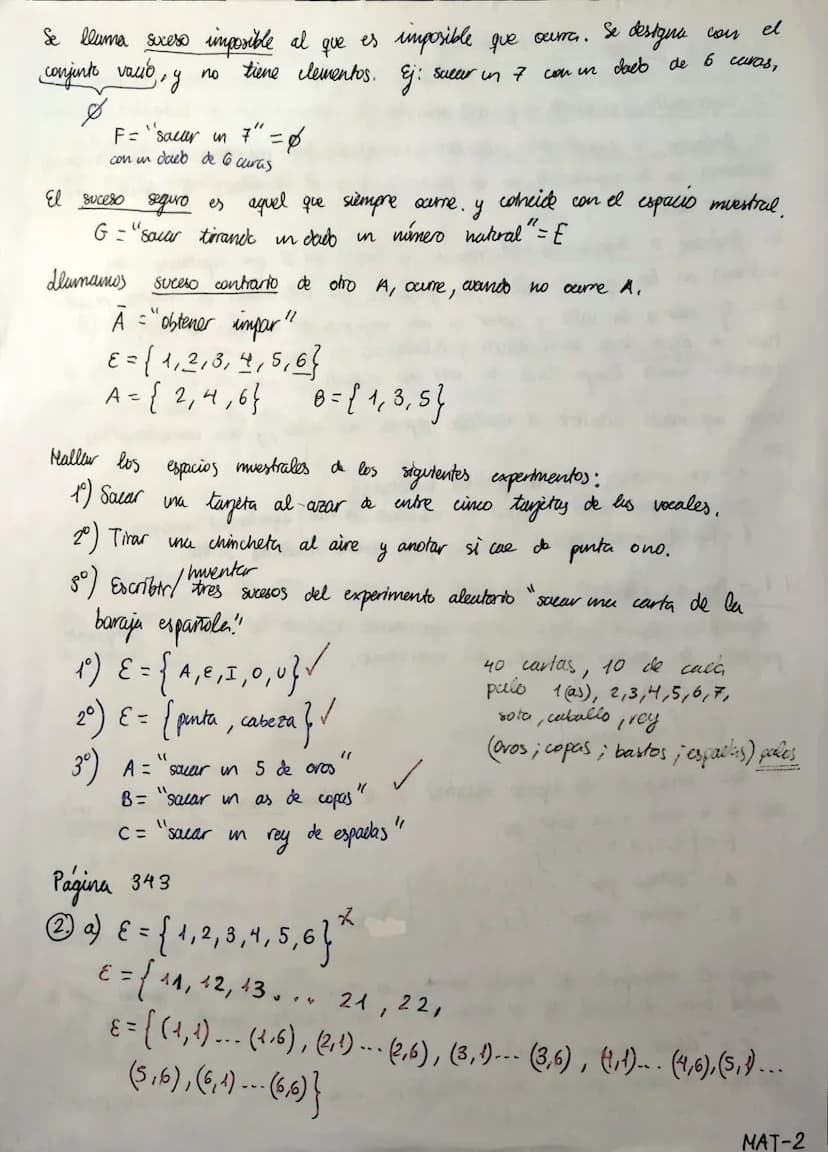 Se llama suceso imposible al que es imposible que ocurra. Se designa con el
conjunto vacío, y no tiene elementos. Ej: sacar un 7 con un dado de 6 caras,
∅
F = "sacar un 7" = ∅
con un dado de 6 caras
El suceso seguro es aquel que siempre ocurre. y coincide con el espacio muestral.
G = "sacar tirando un dado un número natural" = E
Llamamos suceso contrario de otro A, ocurre, cuando no ocurre A.
Ā = "obtener impar"
E = { 1, 2, 3, 4, 5, 6}
A = { 2, 4, 6} B = { 1, 3, 5}
Hallar los espacios muestrales de los siguientes experimentos:
1º) Sacar una tarjeta al azar de entre cinco tarjetas de las vocales.
2º) Tirar una chincheta al aire y anotar si cae de punta o no.
3º) Escribir/Inventar tres sucesos del experimento aleatorio "sacar una carta de la
baraja española."
1º) E = { A, E, I, O, U} ✓
2º) E = { punta, cabeza } ✓
3º) A = "sacar un 5 de oros"
B = "sacar un as de copas" ✓
C = "sacar un rey de espadas"
40 cartas, 10 de cada
palo 1(as), 2, 3, 4, 5, 6, 7,
sota, caballo, rey
(oros; copas; bastos; espadas) palos
Página 343
2. a) E = { 1, 2, 3, 4, 5, 6}
E = { 11, 12, 13 .... 21, 22,
E = { (1,1) ... (1,6), (2,1) ... (2,6), (3,1) ... (3,6), (4,1) ... (4,6), (5,1) ...
(5,6), (6,1) ... (6,6)}
MAT-2